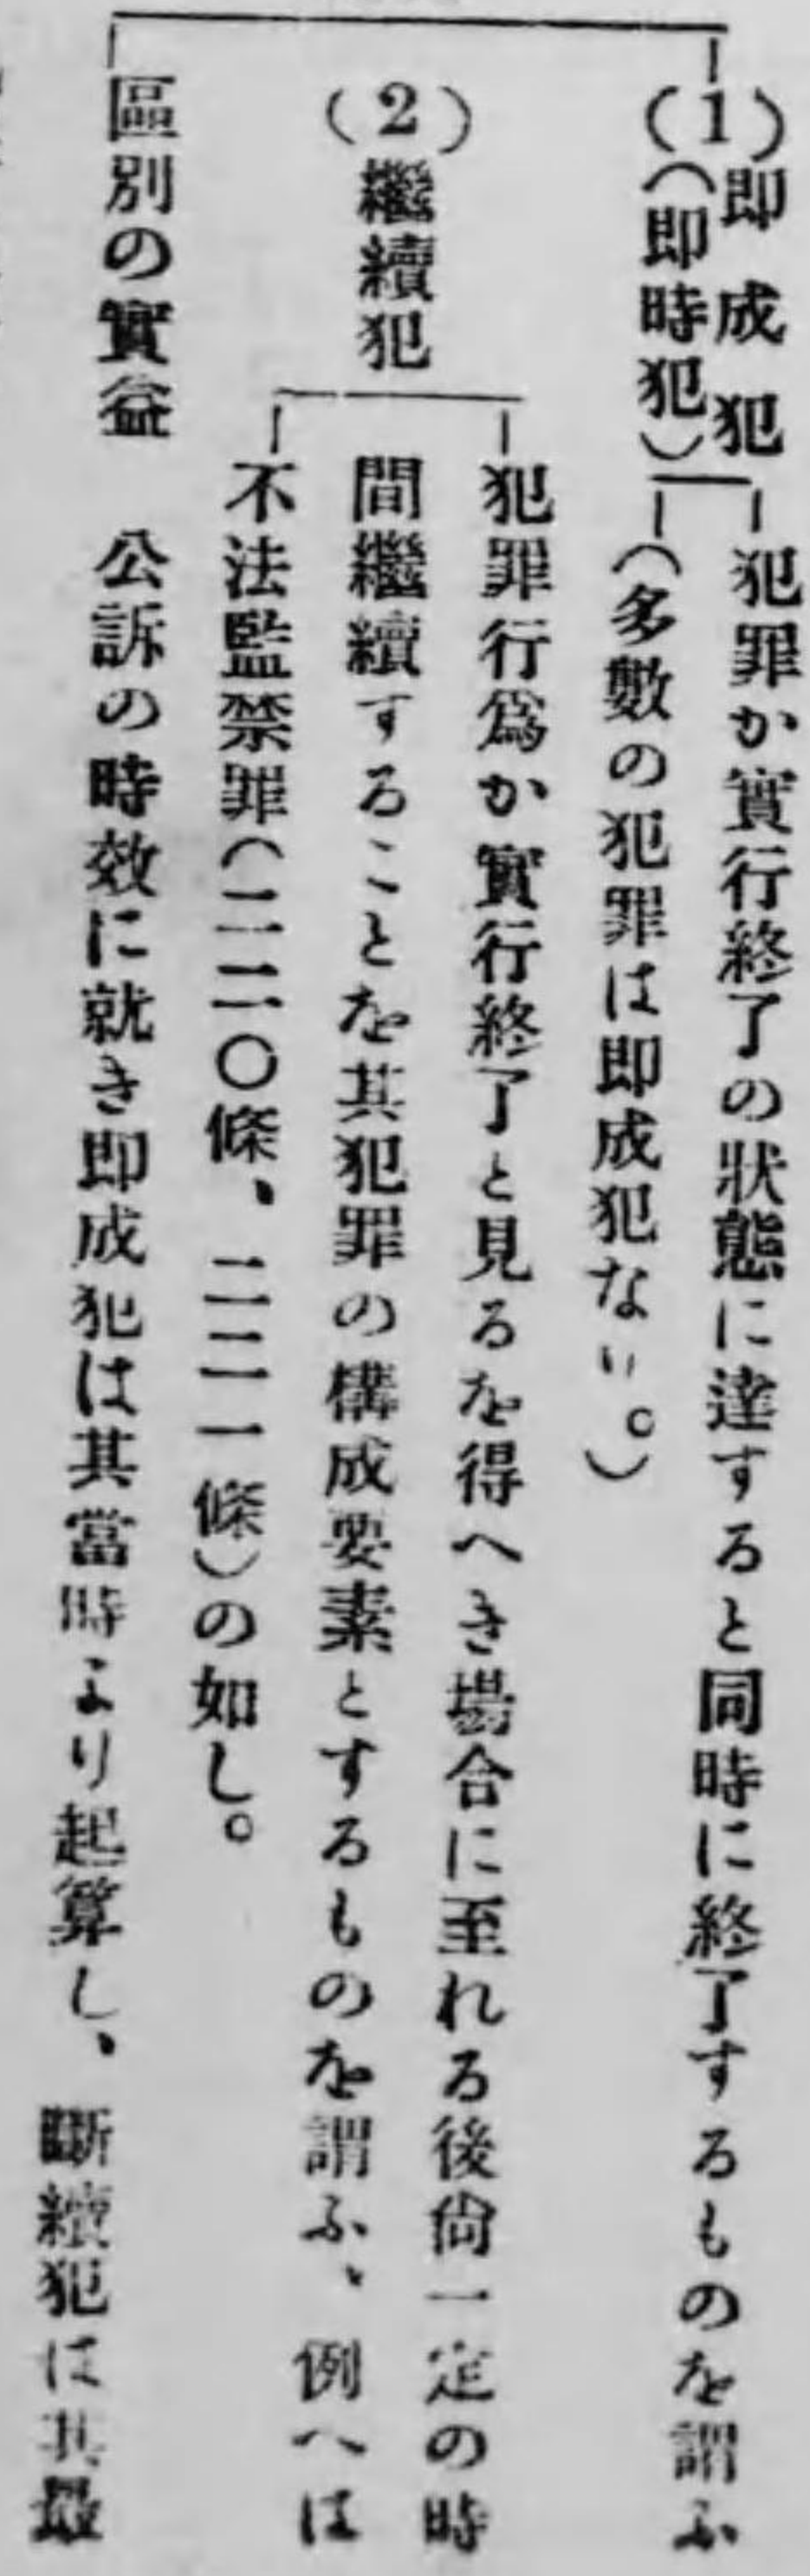 (1)即成犯
(即時犯)
犯罪か實行終了の狀態に達すると同時に終了するものを謂ふ
(多數の犯罪は即成犯なり。)
(2)繼續犯
犯罪行爲か實行終了と見るを得へき場合に至れる後尙一定の時
間繼續することを其犯罪の構成要素とするものを謂ふ、例へは
不法監禁罪(二二〇條、二二一條)の如し。
區別の實益 公訴の時效に就き即成犯は其當時より起算し、斷續犯は其最